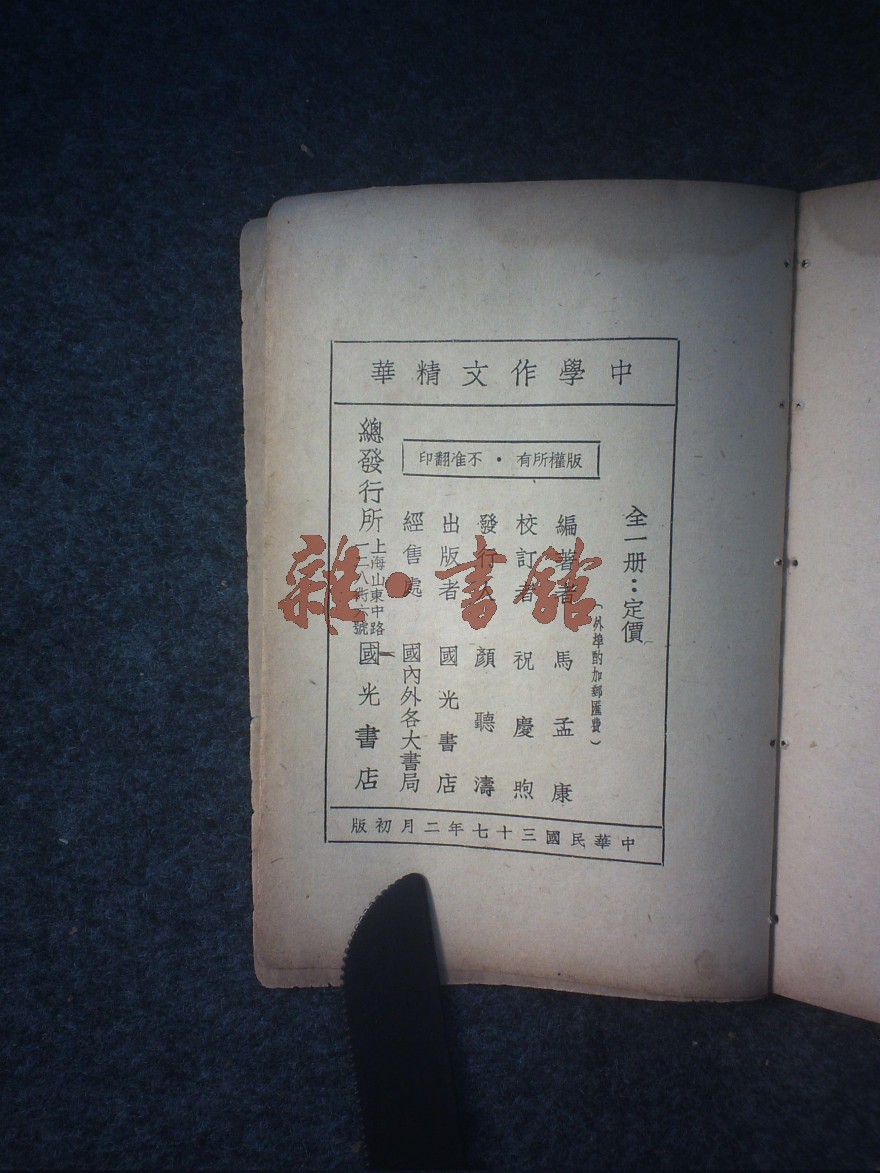 中學作文精華
版權所有・不准翻印
全一册：定價
（外埠酌加郵匯費）
編著者 馬孟康
校訂者 祝慶煦
發行人 顏聽濤
出版者 國光書店
經售處 國內外各大書局
總發行所 上海山東中路一二八街六號 國光書店
中華民國三十七年二月初版
雜・書館